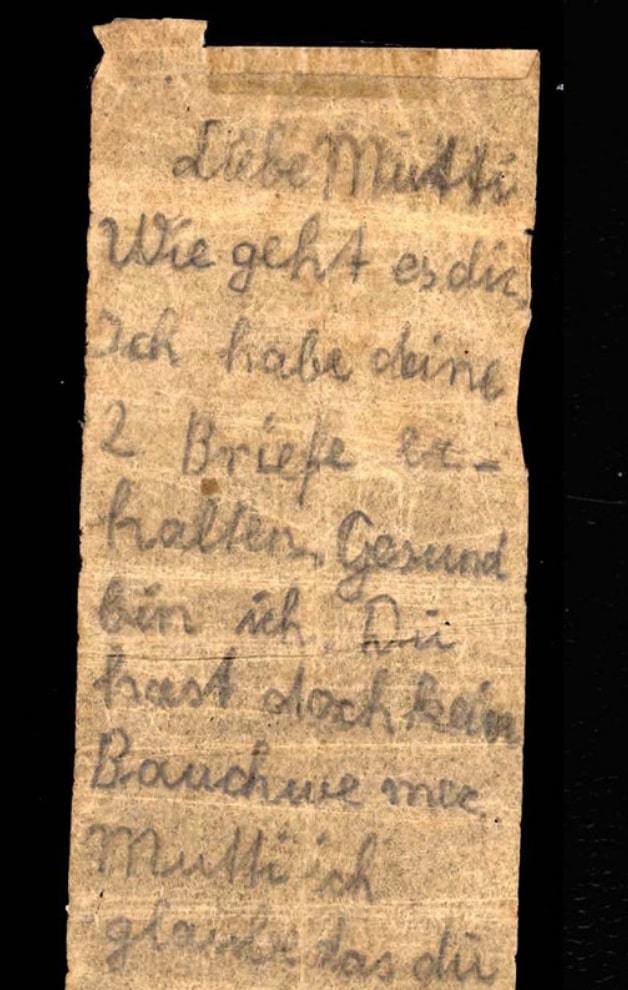 Liebe Mutti
Wie geht es dir,
Ich habe deine
2 Briefe er-
halten, Gesund
bin ich. Du
hast doch kein
Bauchwe mer,
Mutti ich
glaube das du